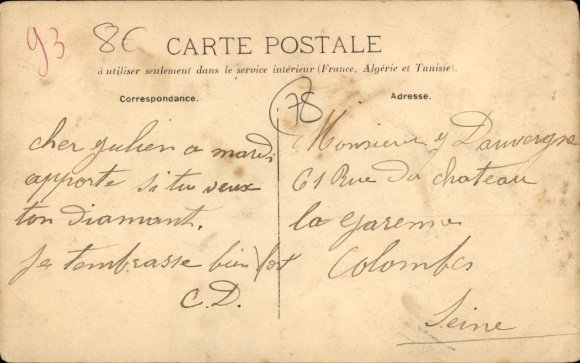 93
8€
CARTE POSTALE
à utiliser seulement dans le service intérieur (France, Algérie et Tunisie).
Correspondance.
Adresse.
78
cher julien a mardi
apporte si tu veux
ton diamant.
je tembrasse bien fort
C.D.
Monsieur J Dauvergne
61 Rue du chateau
la garenne
Colombes
Seine